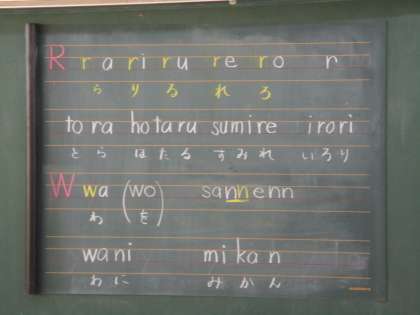 R ra ri ru re ro r
ら り る れ ろ
tora hotaru sumire irori
とら ほたる すみれ いろり
W wa (wo) sannenn
わ を
wani mikan
わに みかん